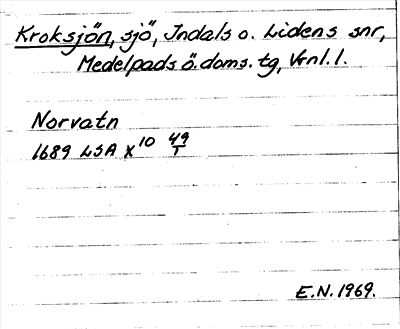 Kroksjön, sjö, Indals o. Lidens snr,
Medelpads ö. doms. tg, Vrnl. l.
Norvatn
1689 LSA X¹⁰ 49/1
E.N. 1969.